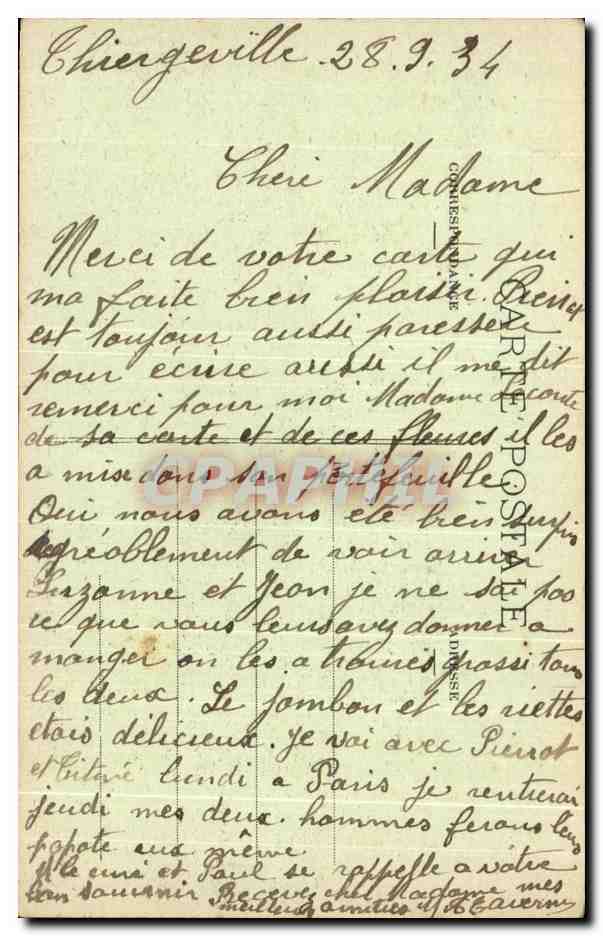 Thiergeville . 28.9.34
Cheri Madame
Merci de votre carte qui
ma faite bien plaisir. Pierrot
est toujour aussi paresseu
pour écrire aussi il me dit
remerci pour moi Madame Leconte
de sa carte et de ces fleures il les
a mise dans son portefeuille
Oui nous avons été bien surpris
agréablement de voir arriver
Suzanne et Jean je ne sai pas
ce que vous leurs avez donner a
manger on les a trouvés grossi tous
les deux. Le jambon et les riettes
etais délicieux. Je vai avec Pierrot
et lundi a Paris je rentrerai
jeudi mes deux hommes ferons leurs
popote eux même
M le curé et Paul se rappelle a votre
bon souvenir Recevez cher Madame mes
meilleurs amities
CORRESPONDANCE
CARTE POSTALE
ADRESSE
CPAPHIL